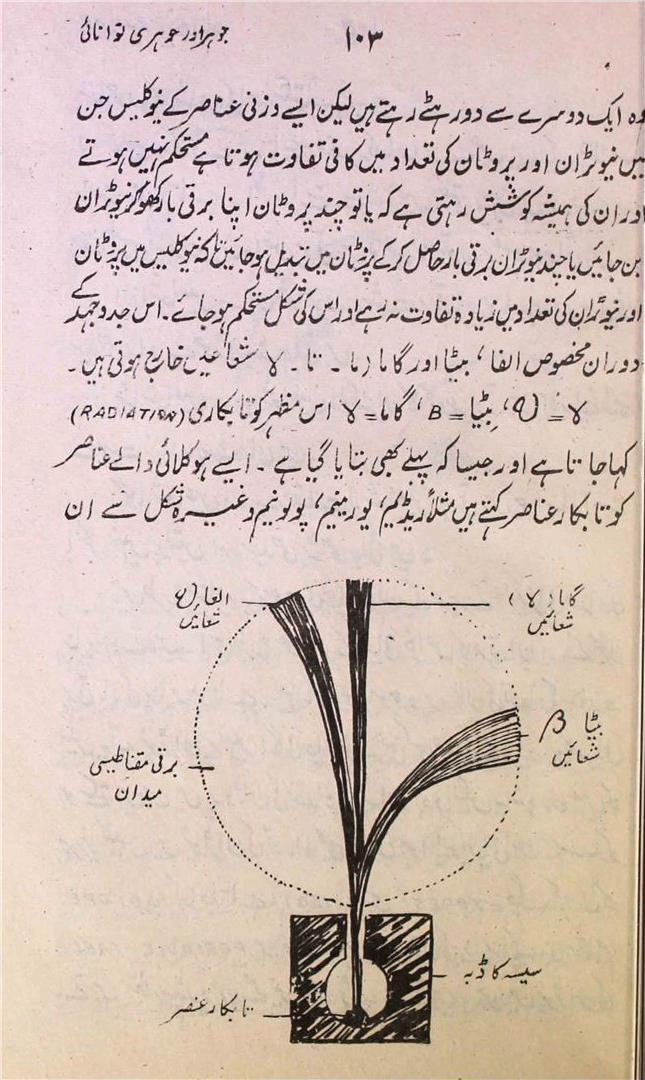 جوہر اور جوہری توانائی
۱۰۳
وہ ایک دوسرے سے دور ہٹے رہتے ہیں لیکن ایسے وزنی عناصر کے نیوکلیس جن
میں نیوٹران اور پروٹان کی تعداد میں کافی تفاوت ہوتا ہے مستحکم نہیں ہوتے
اور ان کی ہمیشہ کوشش رہتی ہے کہ یا تو چند پروٹان اپنا برقی بار کھو کر نیوٹران
بن جائیں یا چند نیوٹران برقی بار حاصل کرکے پروٹان میں تبدیل ہو جائیں تاکہ نیوکلیس میں پروٹان
اور نیوٹران کی تعداد میں زیادہ تفاوت نہ رہے اور اس کی شکل مستحکم ہو جائے۔ اس جدوجہد کے
دوران مخصوص الفا، بیٹا اور گاما (ما۔ تا۔ ४ شعاعیں خارج ہوتی ہیں۔
४ = (५، بیٹا = B، گاما = ४ اس مظہر کو تابکاری (RADIATION)
کہا جاتا ہے اور جیسا کہ پہلے بھی بتایا گیا ہے۔ ایسے نیوکلائی والے عناصر
کو تابکار عناصر کہتے ہیں مثلاً ریڈیم، یورینیم، پولونیم وغیرہ شکل سے ان
گاما (४)
شعائیں
الفا (५
شعائیں
بیٹا β
شعائیں
برقی مقناطیسی
میدان
سیسہ کا ڈبہ
تابکار عنصر